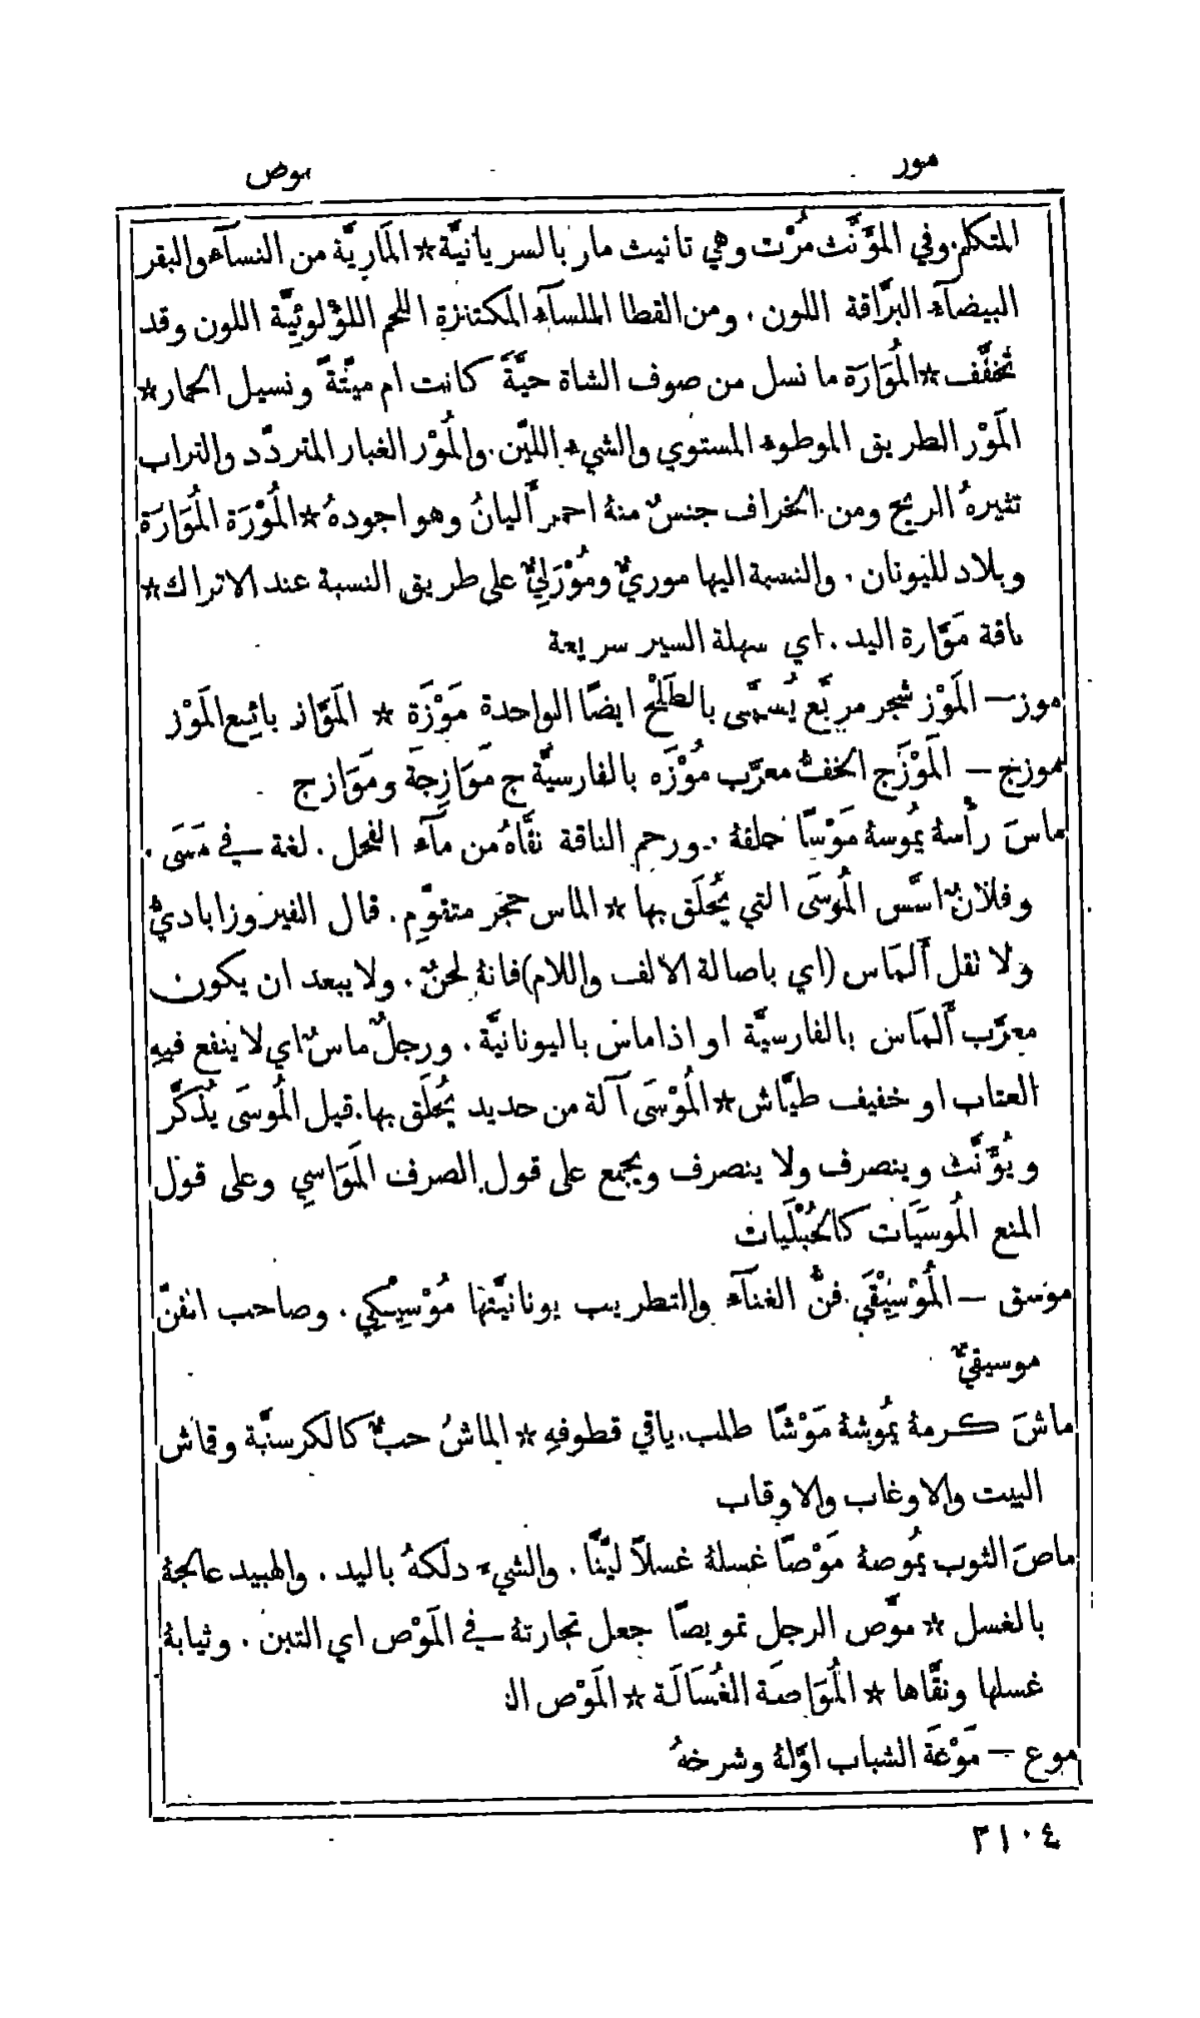 مور
موص
المتكلم وفي المؤَنَّث مُرْت وهي تانيث مار بالسريانيَّة ☆ المَارِيَّة من النسآء والبقر
البيضآء البرَّاقة اللون. ومن القطا الملسآء المكتنزة اللحم اللؤْلوئِيَّة اللون وقد
تُخفَّف ☆ المُوَارَة ما نسل من صوف الشاة حيَّةً كانت ام ميّتةً ونسيل الحمار ☆
المَوْر الطريق الموطوء المستوي والشيء اللّيّن. والمُوْر الغبار المتردّد والتراب
تثيرهُ الريح ومن الخراف جنسٌ منهُ احمر أَليانُ وهو اجودهُ ☆ المُوْرَة المُوَارَة
وبلاد لليونان. والنسبة اليها موريٌّ ومُوْرَليٌّ على طريق النسبة عند الاتراك ☆
ناقة مَوَّارة اليد. اي سهلة السير سريعة
موز — المَوْز شجر مربَّع يُسمَّى بالطَلْح ايضًا الواحدة مَوْزَة ☆ المَوَّاز بائِع المَوْز
موزج — المَوْزَج الخفُّ معرَّب مُوْزَه بالفارسيَّة ج مَوَازِجَة ومَوَازج
ماسَ رأْسهُ يمُوسهُ مَوْسًا حلقهُ. ورحم الناقة نقَّاهُ من مآء الفحل. لغة في مَسَى.
وفلانٌ اسَّس المُوسَى التي يُحْلَق بها ☆ الماس حجر متقوِّم. قال الفيروزاباديُّ
ولا تقل أَلمَاس (اي باصالة الالف واللام) فانهُ لحنٌ. ولا يبعد ان يكون
معرَّب أَلمَاس بالفارسيَّة او اذاماس باليونانيَّة. ورجلٌ ماسٌ اي لا ينفع فيهِ
العتاب او خفيف طيَّاش ☆ المُوْسَى آلة من حديد يُحْلَق بها. قيل المُوسَى يُذكَّر
ويُؤَنَّث وينصرف ولا ينصرف ويجمع على قول الصرف المَوَاسي وعلى قول
المنع المُوسَيَات كالحُبْلَيات
موسق — المُوْسِيْقَي فنُّ الغنآء والتطريب يونانيَّتها مُوْسِيْكِي. وصاحب الفنّ
موسيقيٌّ
ماشَ كرمهُ يمُوشهُ مَوْشًا طلب باقي قطوفهِ ☆ الماشُ حبٌّ كالكرسنَّة وقماش
البيت والاوغاب والاوقاب
ماصَ الثوب يمُوصهُ مَوْصًا غسلهُ غسلًا ليّنًا. والشيء دلكهُ باليد. والهبيد عالجهُ
بالغسل ☆ موَّص الرجل تمويصًا جعل تجارتهُ في المَوْص اي التبن. وثيابهُ
غسلها ونقَّاها ☆ المُوَاصَة الغُسَالَة ☆ المَوْص الـ
موع — مَوْعَة الشباب اوَّلهُ وشرخهُ
٢١٠٤